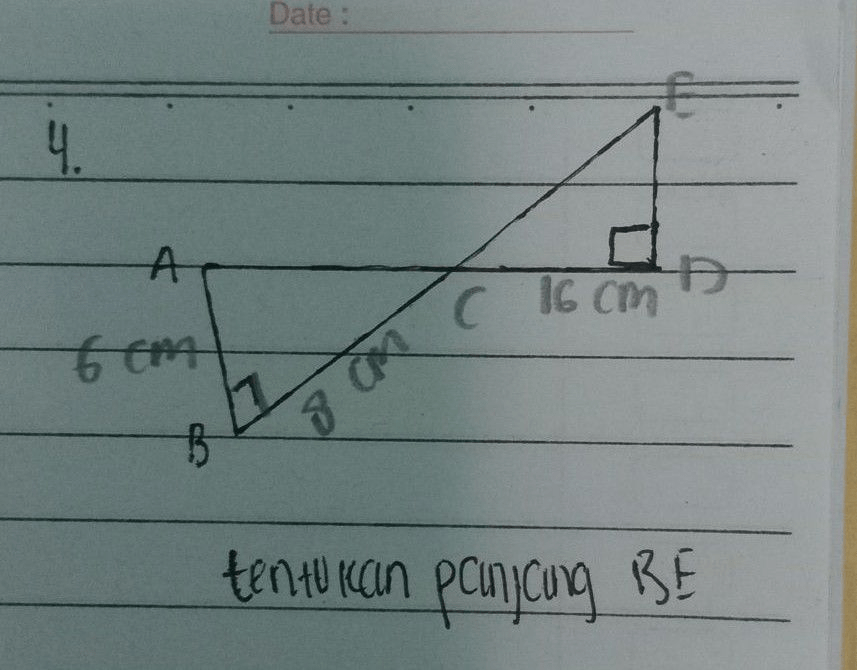 Date :
4.
E
A
C
16 cm
D
6 cm
8 cm
B
tentukan panjang BE